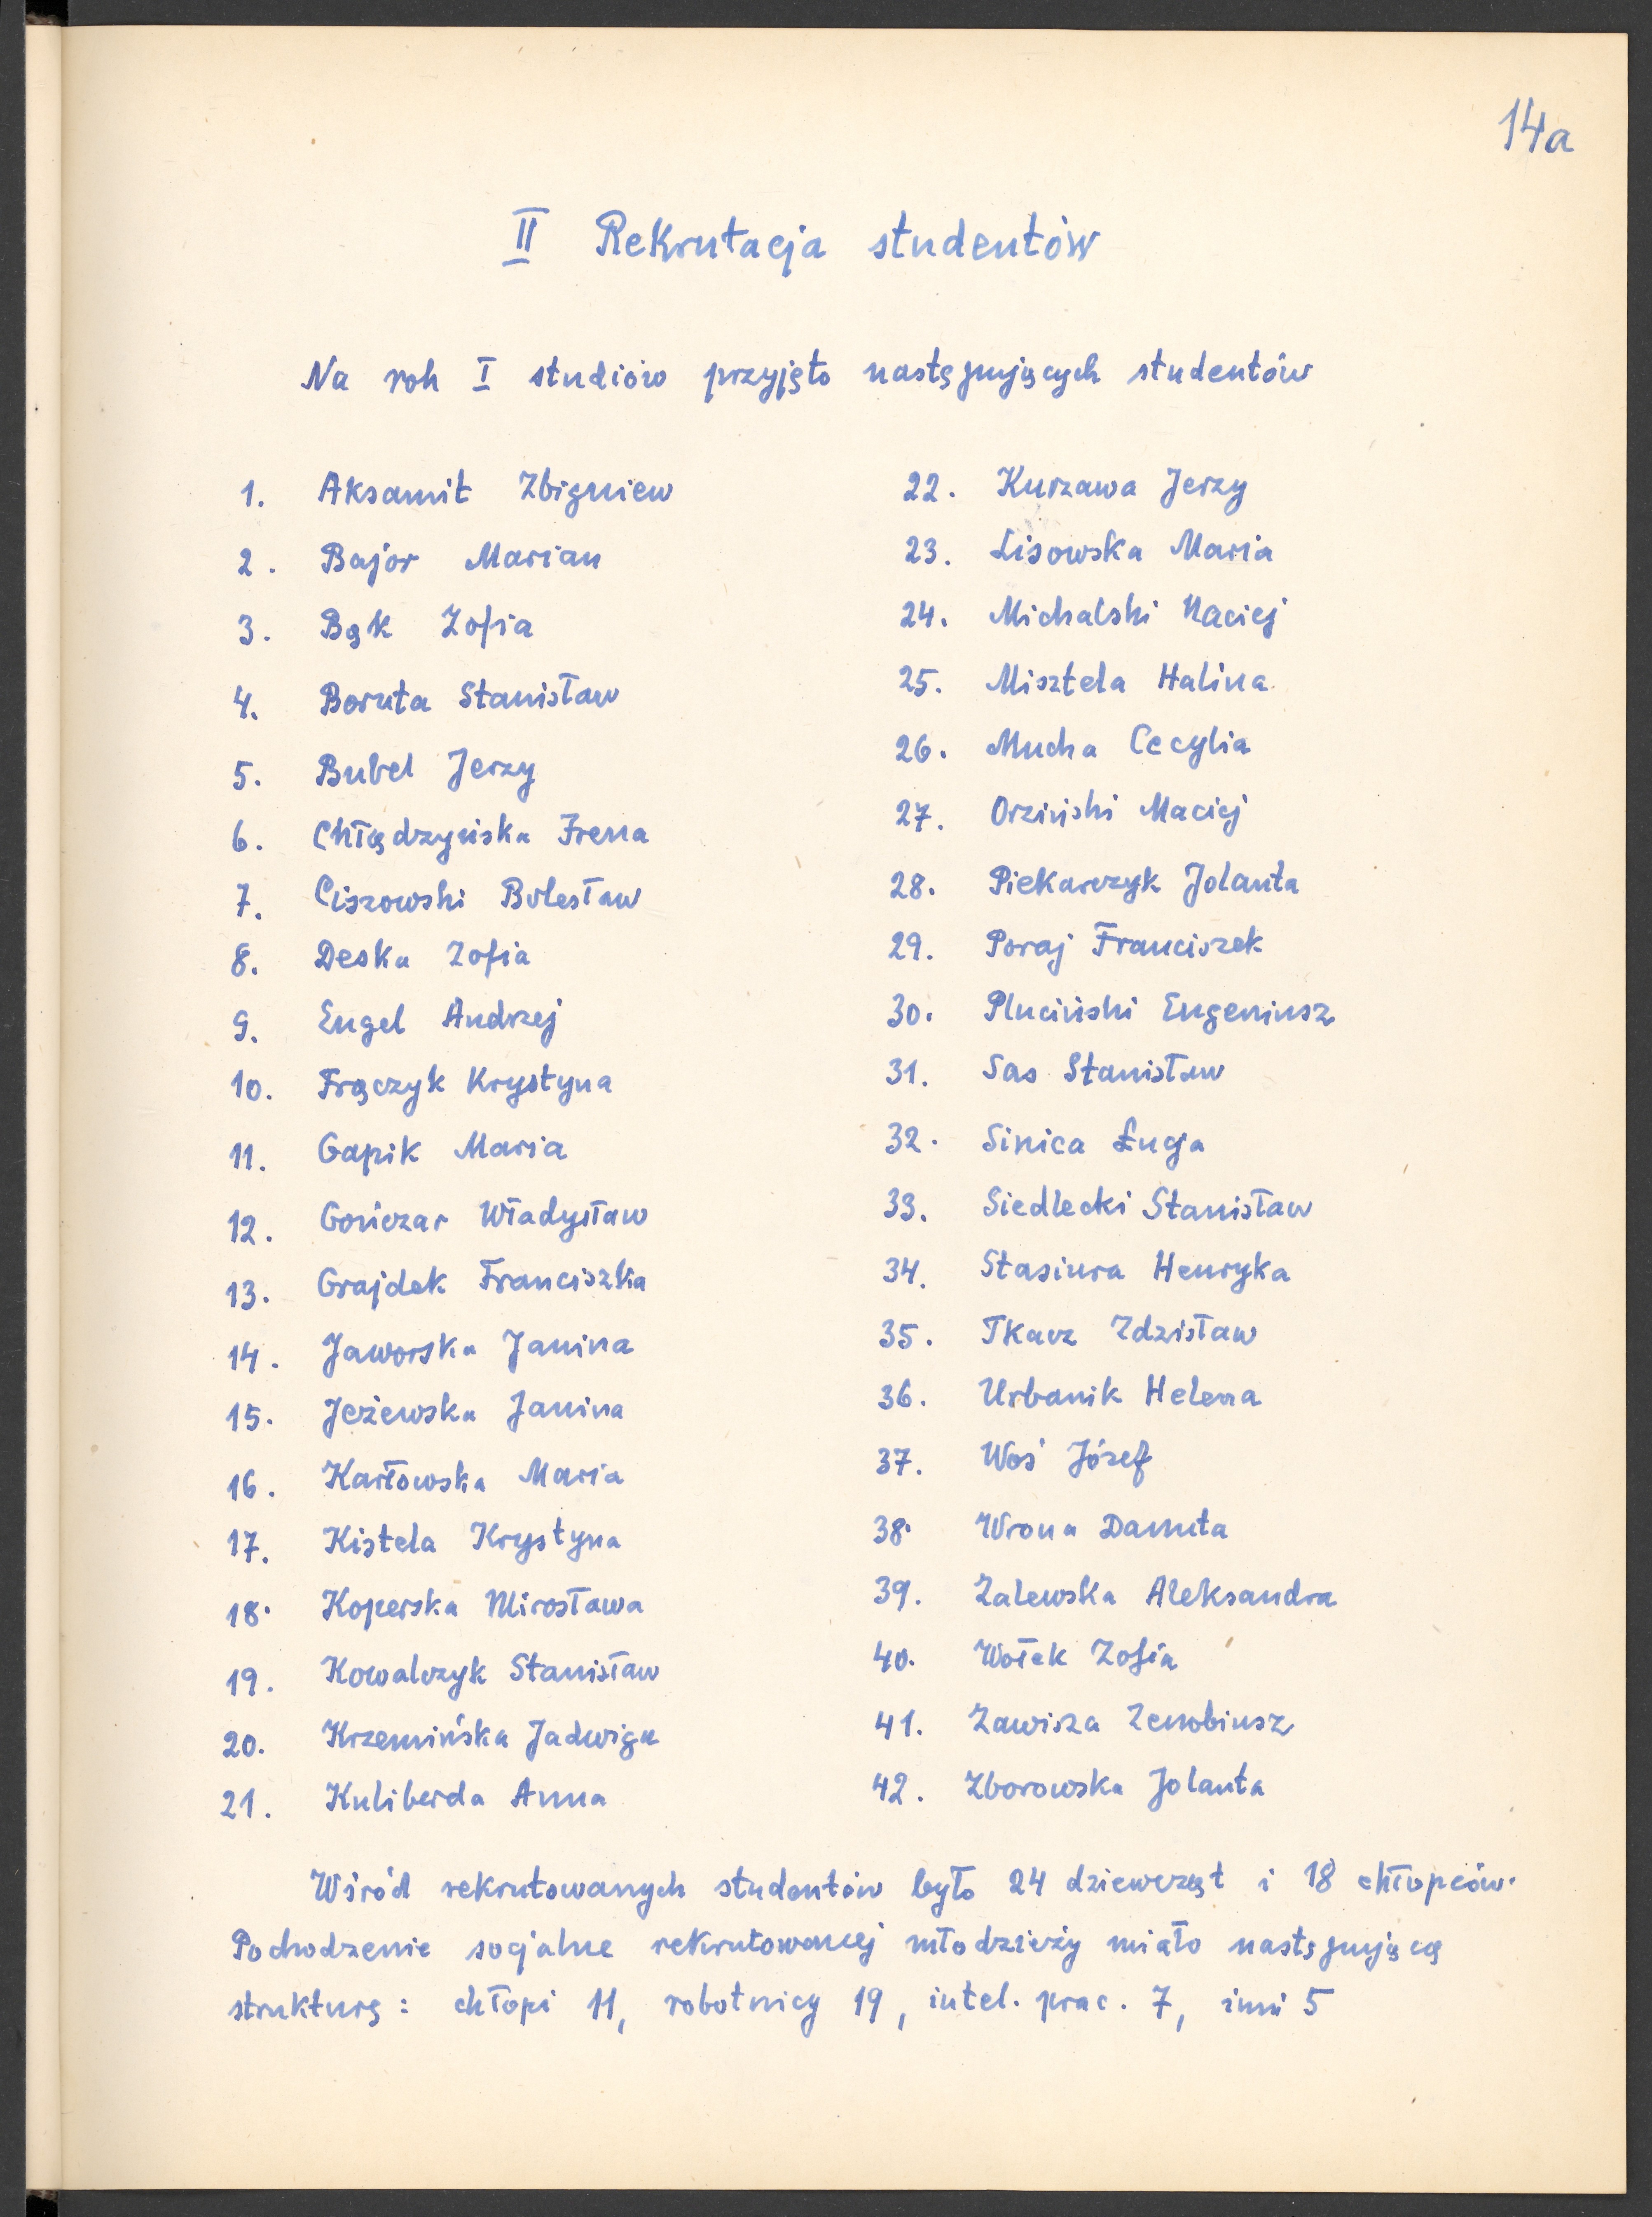 14a
II Rekrutacja studentów
Na rok I studiów przyjęto następujących studentów
1. Aksamit Zbigniew
2. Bajor Marian
3. Bąk Zofia
4. Boruta Stanisław
5. Bubel Jerzy
6. Chłądzyńska Irena
7. Ciszowski Bolesław
8. Deska Zofia
9. Engel Andrzej
10. Frączyk Krystyna
11. Gapik Maria
12. Gończar Władysław
13. Grajdek Franciszka
14. Jaworska Janina
15. Jeżewska Janina
16. Karłowska Maria
17. Kistela Krystyna
18. Koperska Mirosława
19. Kowalczyk Stanisław
20. Krzemińska Jadwiga
21. Kuliberda Anna
22. Kurzawa Jerzy
23. Lisowska Maria
24. Michalski Maciej
25. Misztela Halina
26. Mucha Cecylia
27. Orziński Maciej
28. Piekarczyk Jolanta
29. Poraj Franciszek
30. Pluciński Eugeniusz
31. Sas Stanisław
32. Sinica Łucja
33. Siedlecki Stanisław
34. Stasiura Henryka
35. Tkacz Zdzisław
36. Urbanik Helena
37. Woś Józef
38. Wrona Danuta
39. Zalewska Aleksandra
40. Wołek Zofia
41. Zawisza Zenobiusz
42. Zborowska Jolanta
Wśród rekrutowanych studentów było 24 dziewcząt i 18 chłopców.
Pochodzenie socjalne rekrutowanej młodzieży miało następującą
strukturę: chłopi 11, robotnicy 19, intel. prac. 7, inni 5